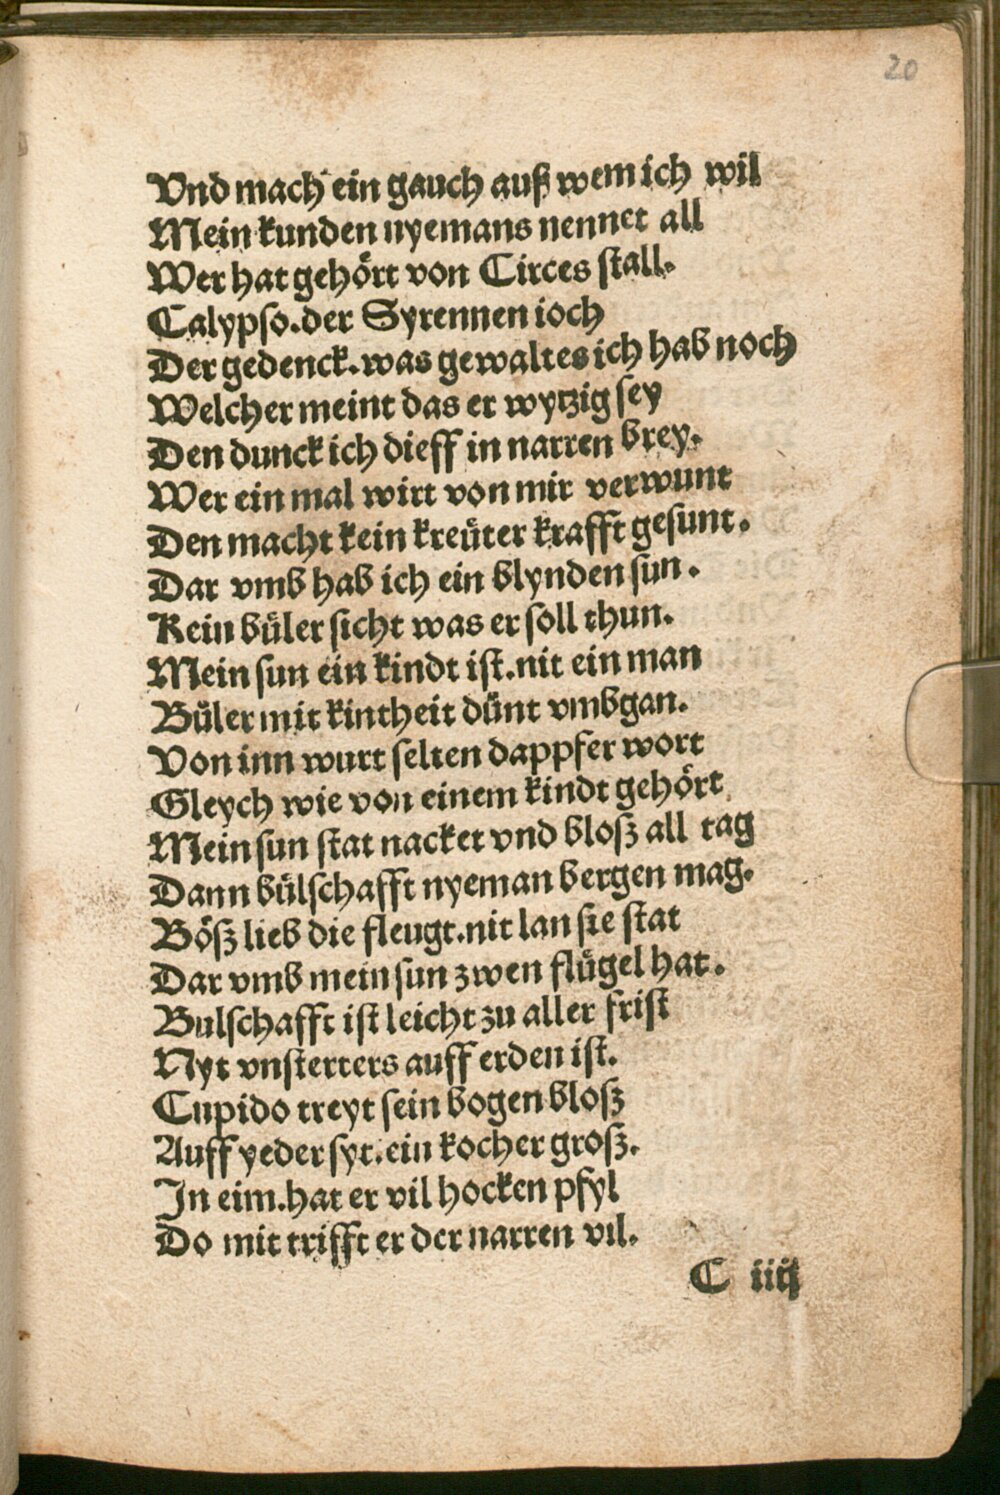 20
Vnd mach ein gauch auß wem ich wil
Mein kunden nyemans nennet all
Wer hat gehört von Circes stall.
Calypso. der Syrennen ioch
Der gedenck. was gewaltes ich hab noch
Welcher meint das er wytzig sey
Den dunck ich dieff in narren brey.
Wer ein mal wirt von mir verwunt
Den macht kein kreüter krafft gesunt.
Dar vmb hab ich ein blynden sun.
Kein büler sicht was er soll thun.
Mein sun ein kindt ist. nit ein man
Büler mit kintheit dünt vmbgan.
Von inn wurt selten dappfer wort
Gleych wie von einem kindt gehört
Mein sun stat nacket vnd blosz all tag
Dann bülschafft nyeman bergen mag.
Bösz lieb die fleugt. nit lan sie stat
Dar vmb mein sun zwen flügel hat.
Bulschafft ist leicht zu aller frist
Nyt vnsterters auff erden ist.
Cupido treyt sein bogen blosz
Auff yeder syt. ein kocher grosz.
In eim. hat er vil hocken pfyl
Do mit trifft er der narren vil.
C iiij